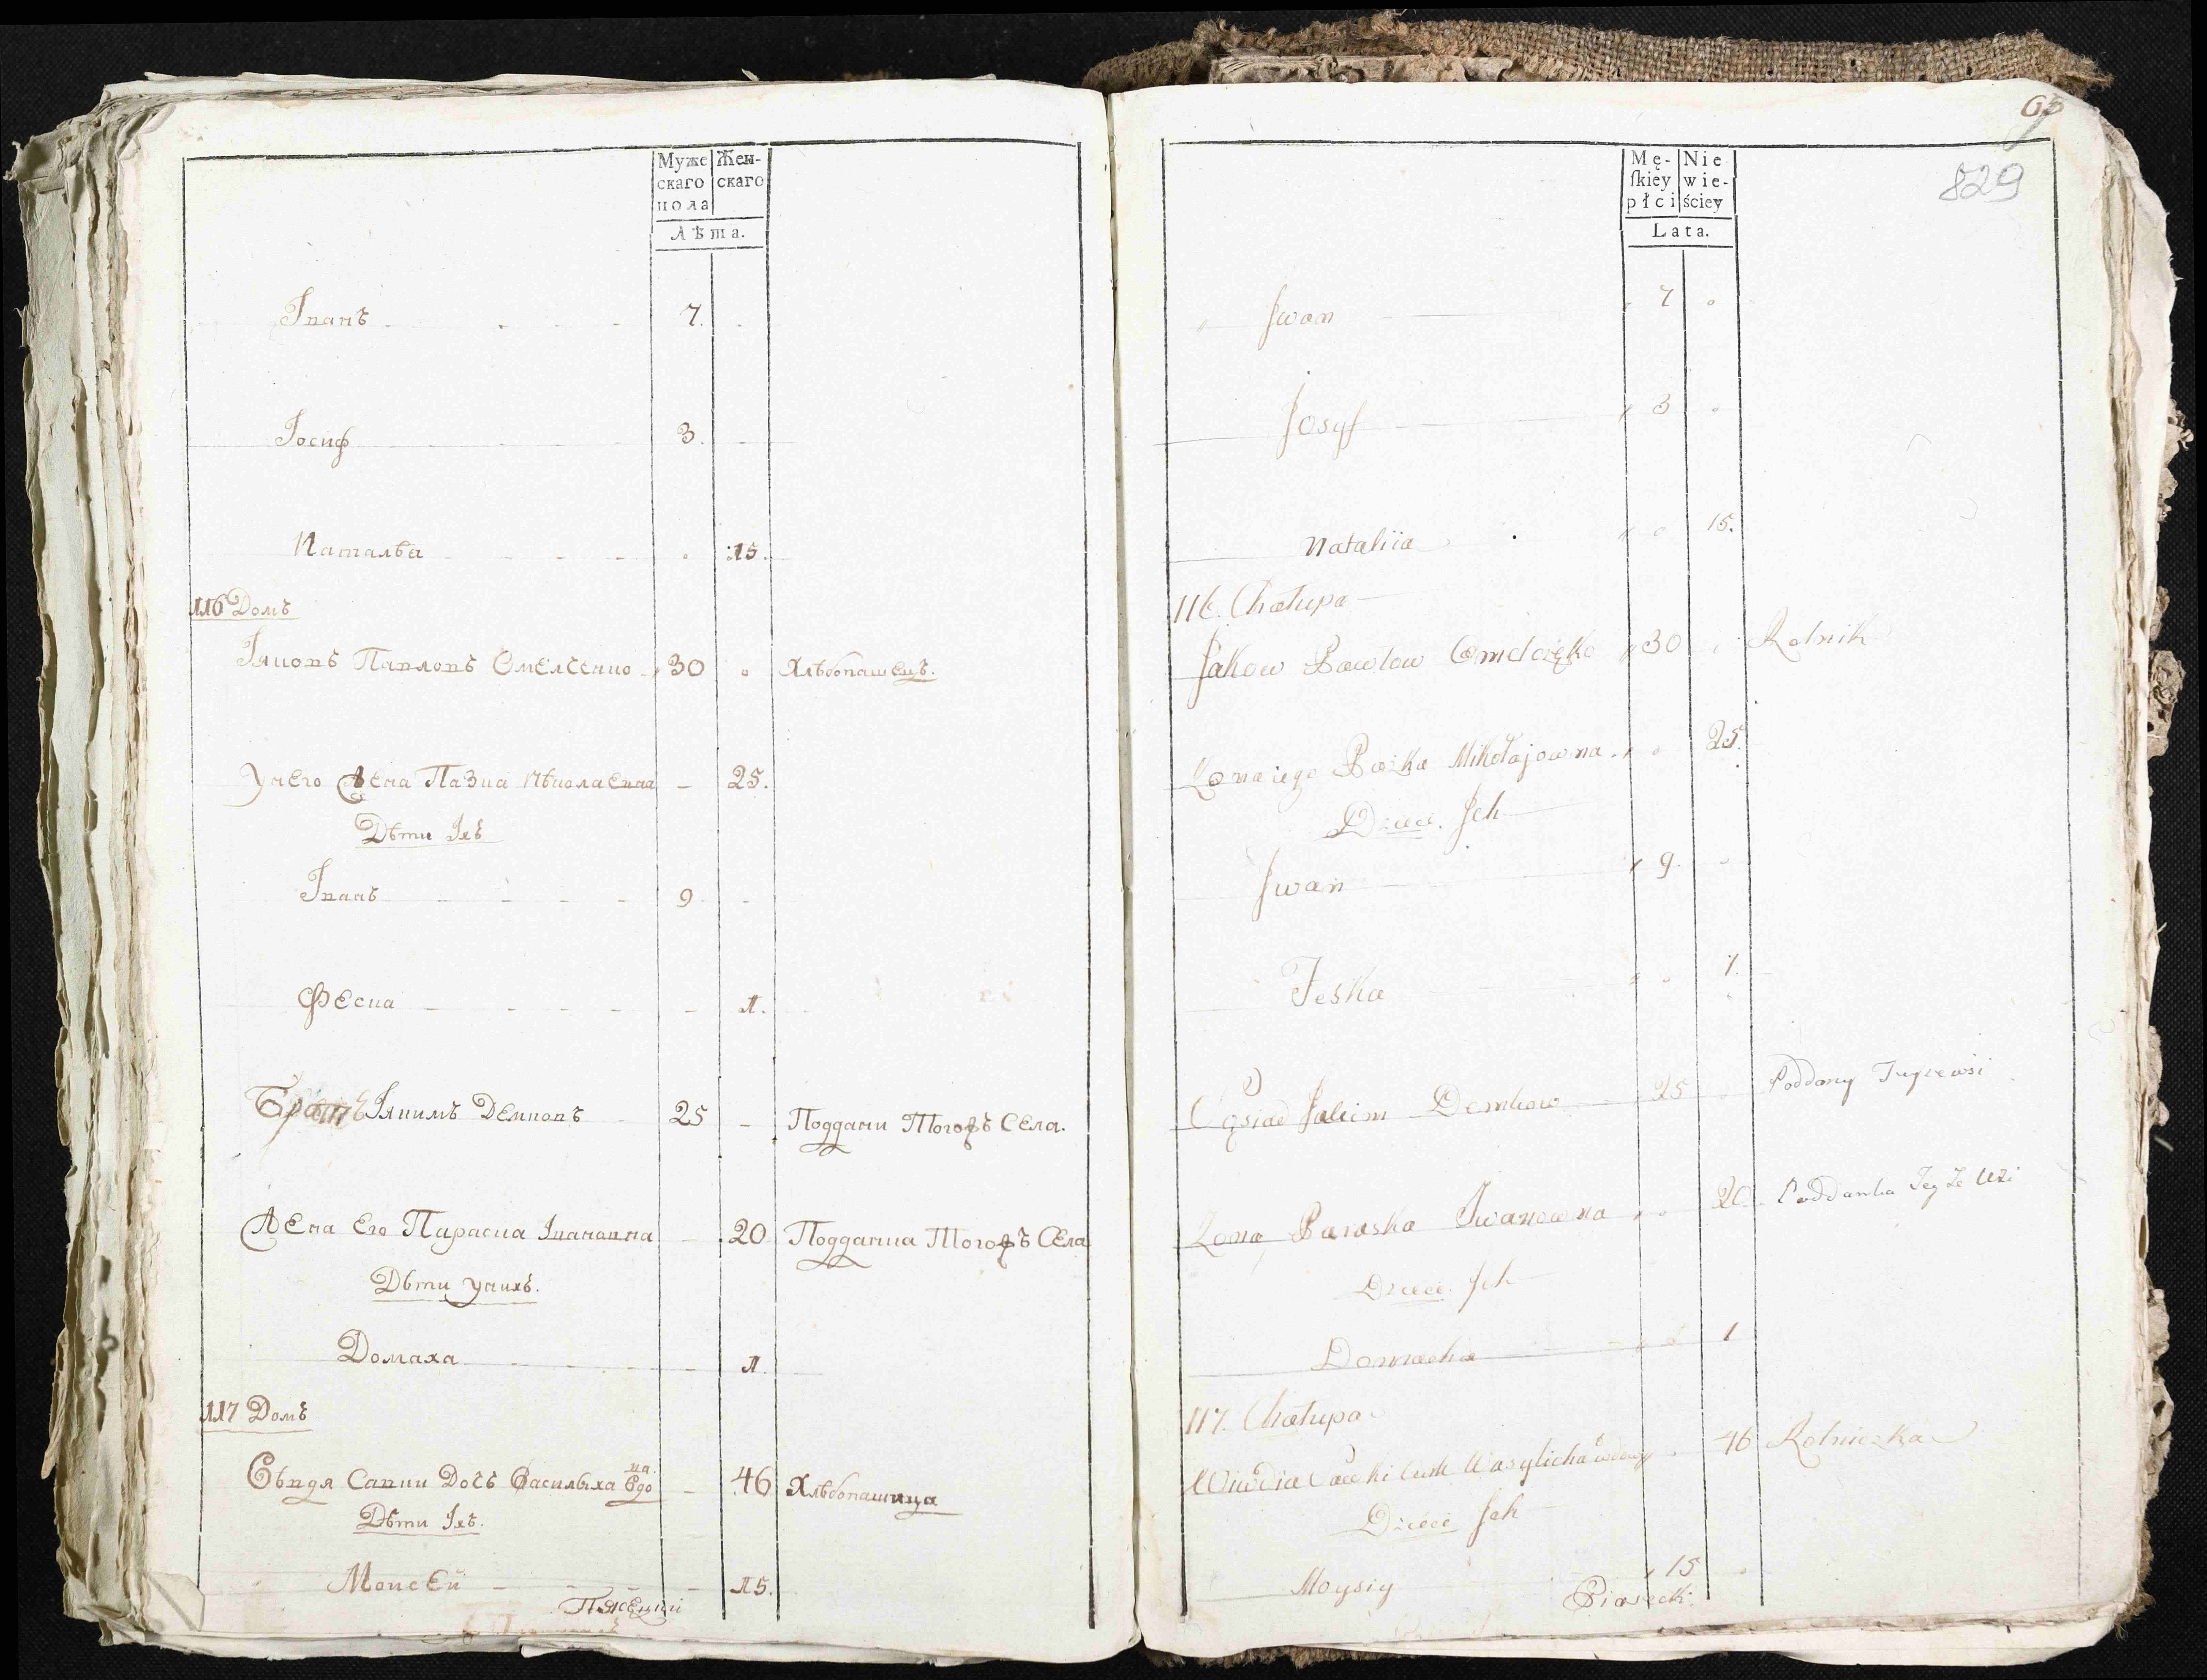 Муже Жен-
скаго скаго
пола
Лѣта.
Іванъ 7.
Іосиф 3.
Наталья 15.
116 Домъ
Яковъ Павловъ Омелченко 30 Хлѣбопашецъ.
У него Жена Пазка Нѣколаевна 25.
Дѣти Ихъ
Іванъ 9
Феска 1.
Братъ Якимъ Демковъ 25 Поддани Тогожъ Села.
Жена Его Параска Івановна 20 Поддання Тогожъ Села
Дѣти у нихъ.
Домаха 1
117 Домъ
Євдя Савки Дочъ Василыха Вдова 46 Хлѣбопашица
Дѣти Ихъ.
Моисей 15.
Пясецкий
63
829
Mę- Nie
skiey wie-
płci ściey
Lata.
Jwan 7
Josyf 3
Nataliia 15.
116. Chałupa
Jakow Pawłow Omelczęko 30 Rolnik
Zona iego Paźka Mikołajowna 25.
Dzieci Jch
Jwan 9
Feska 1.
Sąsiad Jakim Demkow 25 Poddany Teyze wsi
Zona Paraska Jwanowna 20 Poddanka Teyże Wsi
Dzieci Jch
Domacha 1
117. Chałupa
Wiwdia Sawki Curk Wasylicha wdowa 46 Rolniczka
Dzieci Jch
Moysiy 15
Piasecki